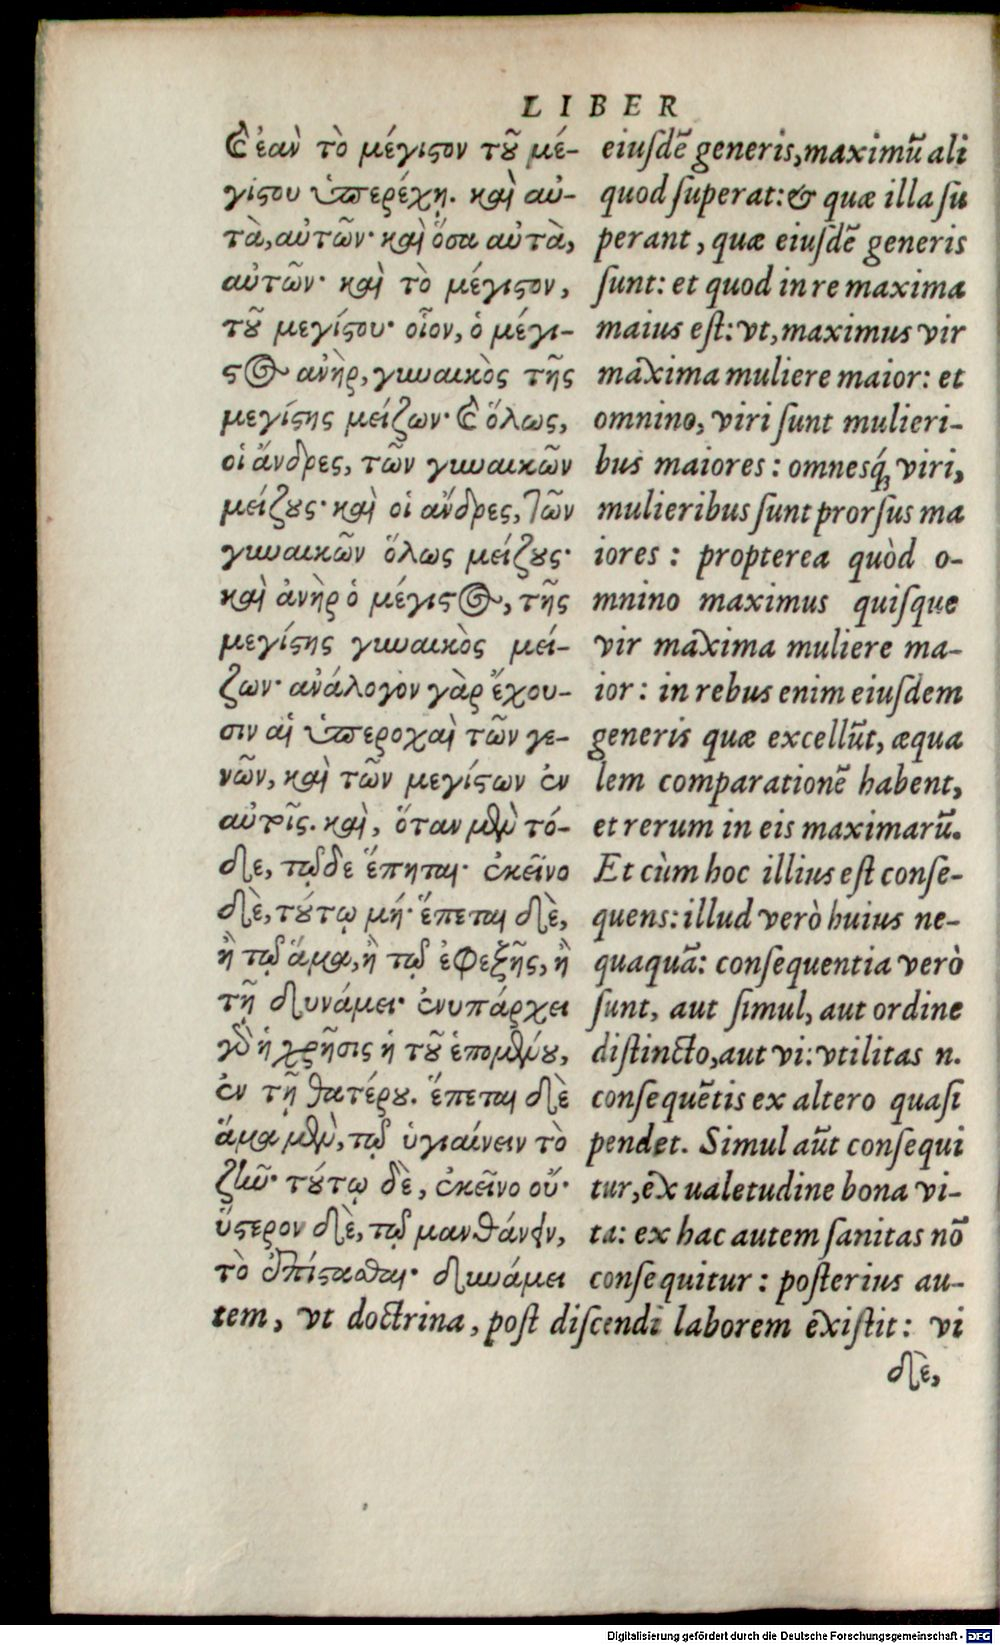 LIBER
ϗ ἐὰν τὸ μέγιϛον τȣ͂ μέ-
γίϛου ὑπερέχῃ. καὶ αὐ-
τὰ, αὐτῶν· καὶ ὅσα αὐτὰ,
αὐτῶν· καὶ τὸ μέγιϛον,
τȣ͂ μεγίϛου· οἷον, ὁ μέγι-
ϛος ἀνὴρ, γυναικὸς τῆς
μεγίϛης μείζων· ϗ ὅλως,
οἱ ἄνδρες, τῶν γυναικῶν
μείζȣς· καὶ οἱ ἄνδρες, τῶν
γυναικῶν ὅλως μείζȣς·
καὶ ἀνὴρ ὁ μέγιϛος, τῆς
μεγίϛης γυναικὸς μεί-
ζων· ἀνάλογον γὰρ ἔχου-
σιν αἱ ὑπεροχαὶ τῶν γε-
νῶν, καὶ τῶν μεγίϛων ἐν
αὐτοῖς. καὶ, ὅταν μὲν τό-
δε, τῷδε ἕπηται· ἐκεῖνο
δὲ, τȣ́τῳ μή· ἕπεται δὲ,
ἢ τῷ ἅμα, ἢ τῷ ἐφεξῆς, ἢ
τῇ δυνάμει· ἐνυπάρχει
γὰρ ἡ χρῆσις ἡ τȣ͂ ἑπομένȣ,
ἐν τῇ θατέρȣ. ἕπεται δὲ
ἅμα μὲν, τῷ ὑγιαίνειν τὸ
ζῆν· τȣ́τῳ δὲ, ἐκεῖνο οὔ·
ὕϛερον δὲ, τῷ μανθάνειν,
τὸ ἐπίϛασθαι· δυνάμει
eiuſdē generis, maximū ali
quod ſuperat: & quæ illa ſu
perant, quæ eiuſdē generis
ſunt: et quod in re maxima
maius eſt: vt, maximus vir
maxima muliere maior: et
omnino, viri ſunt mulieri-
bus maiores: omnesq́; viri,
mulieribus ſunt prorſus ma
iores: propterea quòd o-
mnino maximus quiſque
vir maxima muliere ma-
ior: in rebus enim eiuſdem
generis quæ excellūt, æqua
lem comparationē habent,
et rerum in eis maximarū.
Et cùm hoc illius eſt conſe-
quens: illud verò huius ne-
quaquā: conſequentia verò
ſunt, aut ſimul, aut ordine
diſtincto, aut vi: vtilitas n.
conſequētis ex altero quaſi
pendet. Simul aūt conſequi
tur, ex ualetudine bona vi-
ta: ex hac autem ſanitas nō
conſequitur: poſterius au-
tem, vt doctrina, poſt diſcendi laborem exiſtit: vi
δὲ,
Digitalisierung gefördert durch die Deutsche Forschungsgemeinschaft - DFG